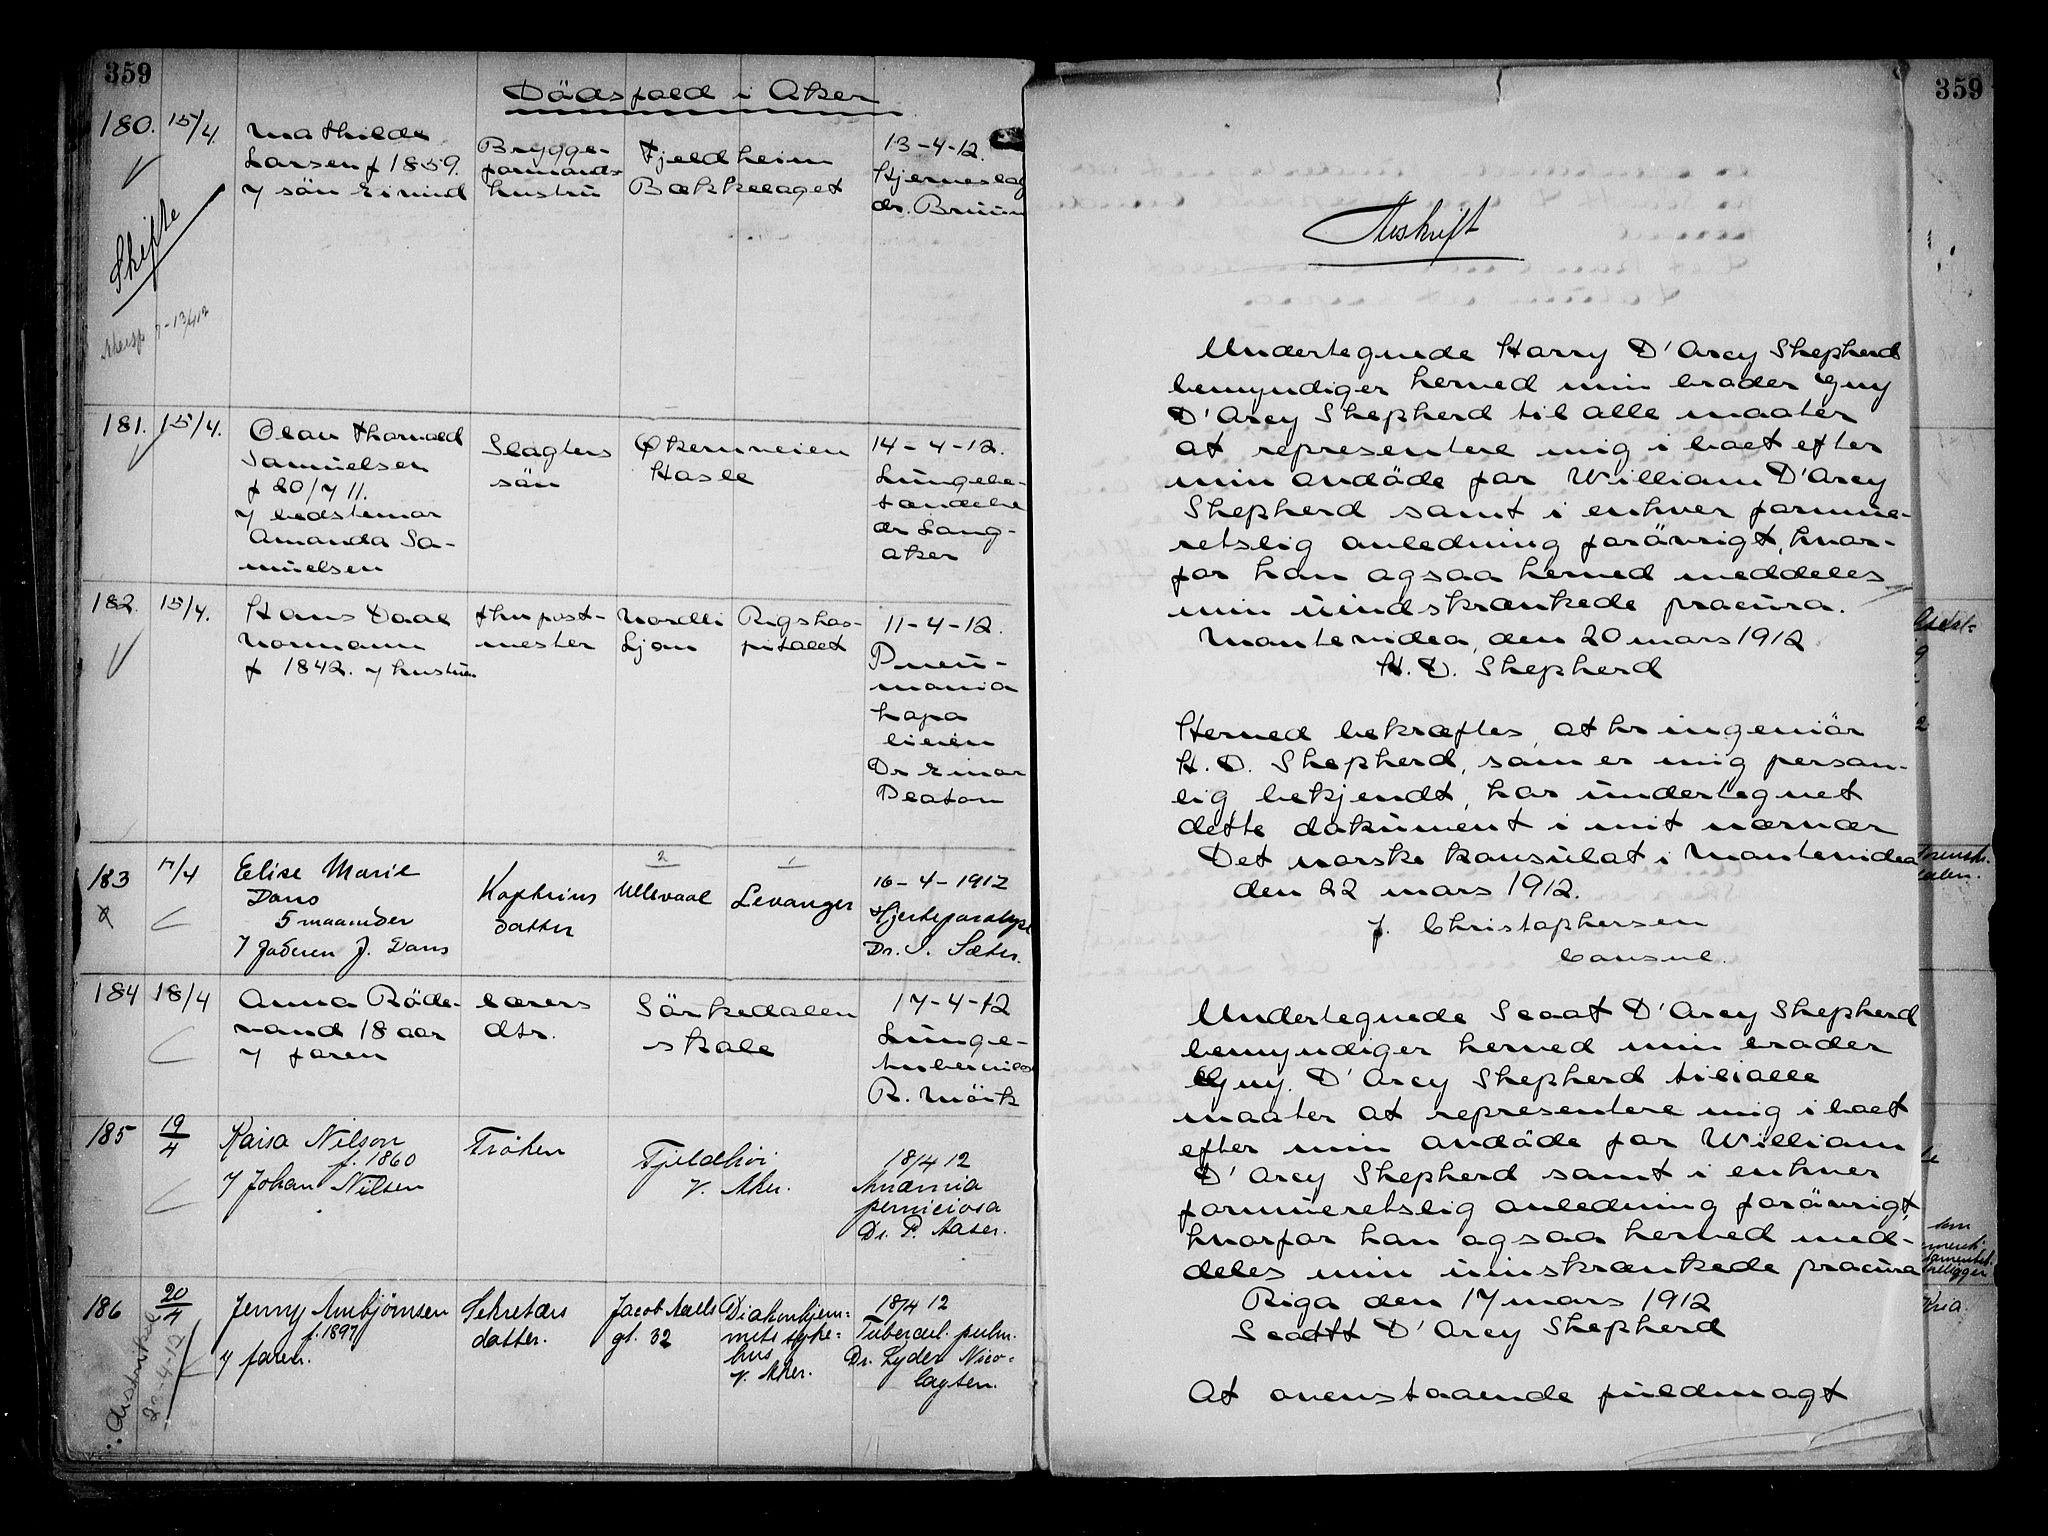 359
Dödsfald i Aker
180. 15/4.
Mathilde
Larsen f 1859.
7 sön Eivind
Brygge-
formands
hustru
Fjeldheim
Bækkelaget
13-4-12.
Hjerneslag
dr. Bruun
Skifte
181. 15/4.
Olav Thorvald
Samuelsen
f 20/7 11.
7 bedstemor
Amanda Sa-
muelsen
Slagters
sön
Økernveien
Hasle
14-4-12.
Lungebe-
tændelse
dr Lang-
aker
182. 15/4.
Hans Daae
Normann
f 1842. 7 hustru
fhv post-
mester
Nordli
Ljan
Rigshos-
pitalet
11-4-12.
Pneu-
monia
Dr Einar
183 17/4
Elise Marie
Dans
5 maaneder
7 faderen J. Dans
Kapteins
datter
2
Ullevaal
1
Levanger
16-4-1912
Hjerteparalyse
Dr. S. Sæter.
184 18/4
Anna Röde-
vand 18 aar
7 faren
lærers
dtr.
Sörkedalen
skole
17-4-12
Lunge-
tuberculos
R. Mörk
185 19/4
Kaisa Nilson
f. 1860
7 Johan Nilsen
Fröken
Fjeldhöi
V. Aker.
18/4 12
Anæmia
perniciosa
Dr. P. Aaser.
186 20/4
Jenny Arnbjörnsen
f. 1897
7 faren.
Sekretærs
datter.
Jacob Aalls
gt. 32
Diakonhjem-
mets syke-
hus
V. Aker.
18/4 12
Tubercul. pulm.
Dr. Lyder Nico-
laysen.
359
Avskrift
Undertegnede Harry D'Arcy Shepherd
bemyndiger herved min broder Guy
D'Arcy Shepherd til alle maater
at representere mig i boet efter
min avdöde far William D'Arcy
Shepherd samt i enhver formue-
retslig anledning forövrigt, hvor-
for han ogsaa herved meddeles
min uindskrænkede procura.
Montevideo, den 20 mars 1912
H. D. Shepherd
Herved bekræftes, at hr ingeniör
H. D. Shepherd, som er mig person-
lig bekjendt, har undertegnet
dette dokument i mit nærvær
Det norske konsulat i Montevideo
den 22 mars 1912.
J. Christophersen
Consul.
Undertegnede Scoot D'Arcy Shepherd
bemyndiger herved min broder
Guy. D'Arcy Shepherd til alle
maater at representere mig i boet
efter min avdöde far William
D'Arcy Shepherd samt i enhver
formueretslig anledning forövrigt,
hvorfor han ogsaa herved med-
deles min uinskrænkede procura
Riga den 17 mars 1912
Scott D'Arcy Shepherd
At ovenstaaende fuldmagt